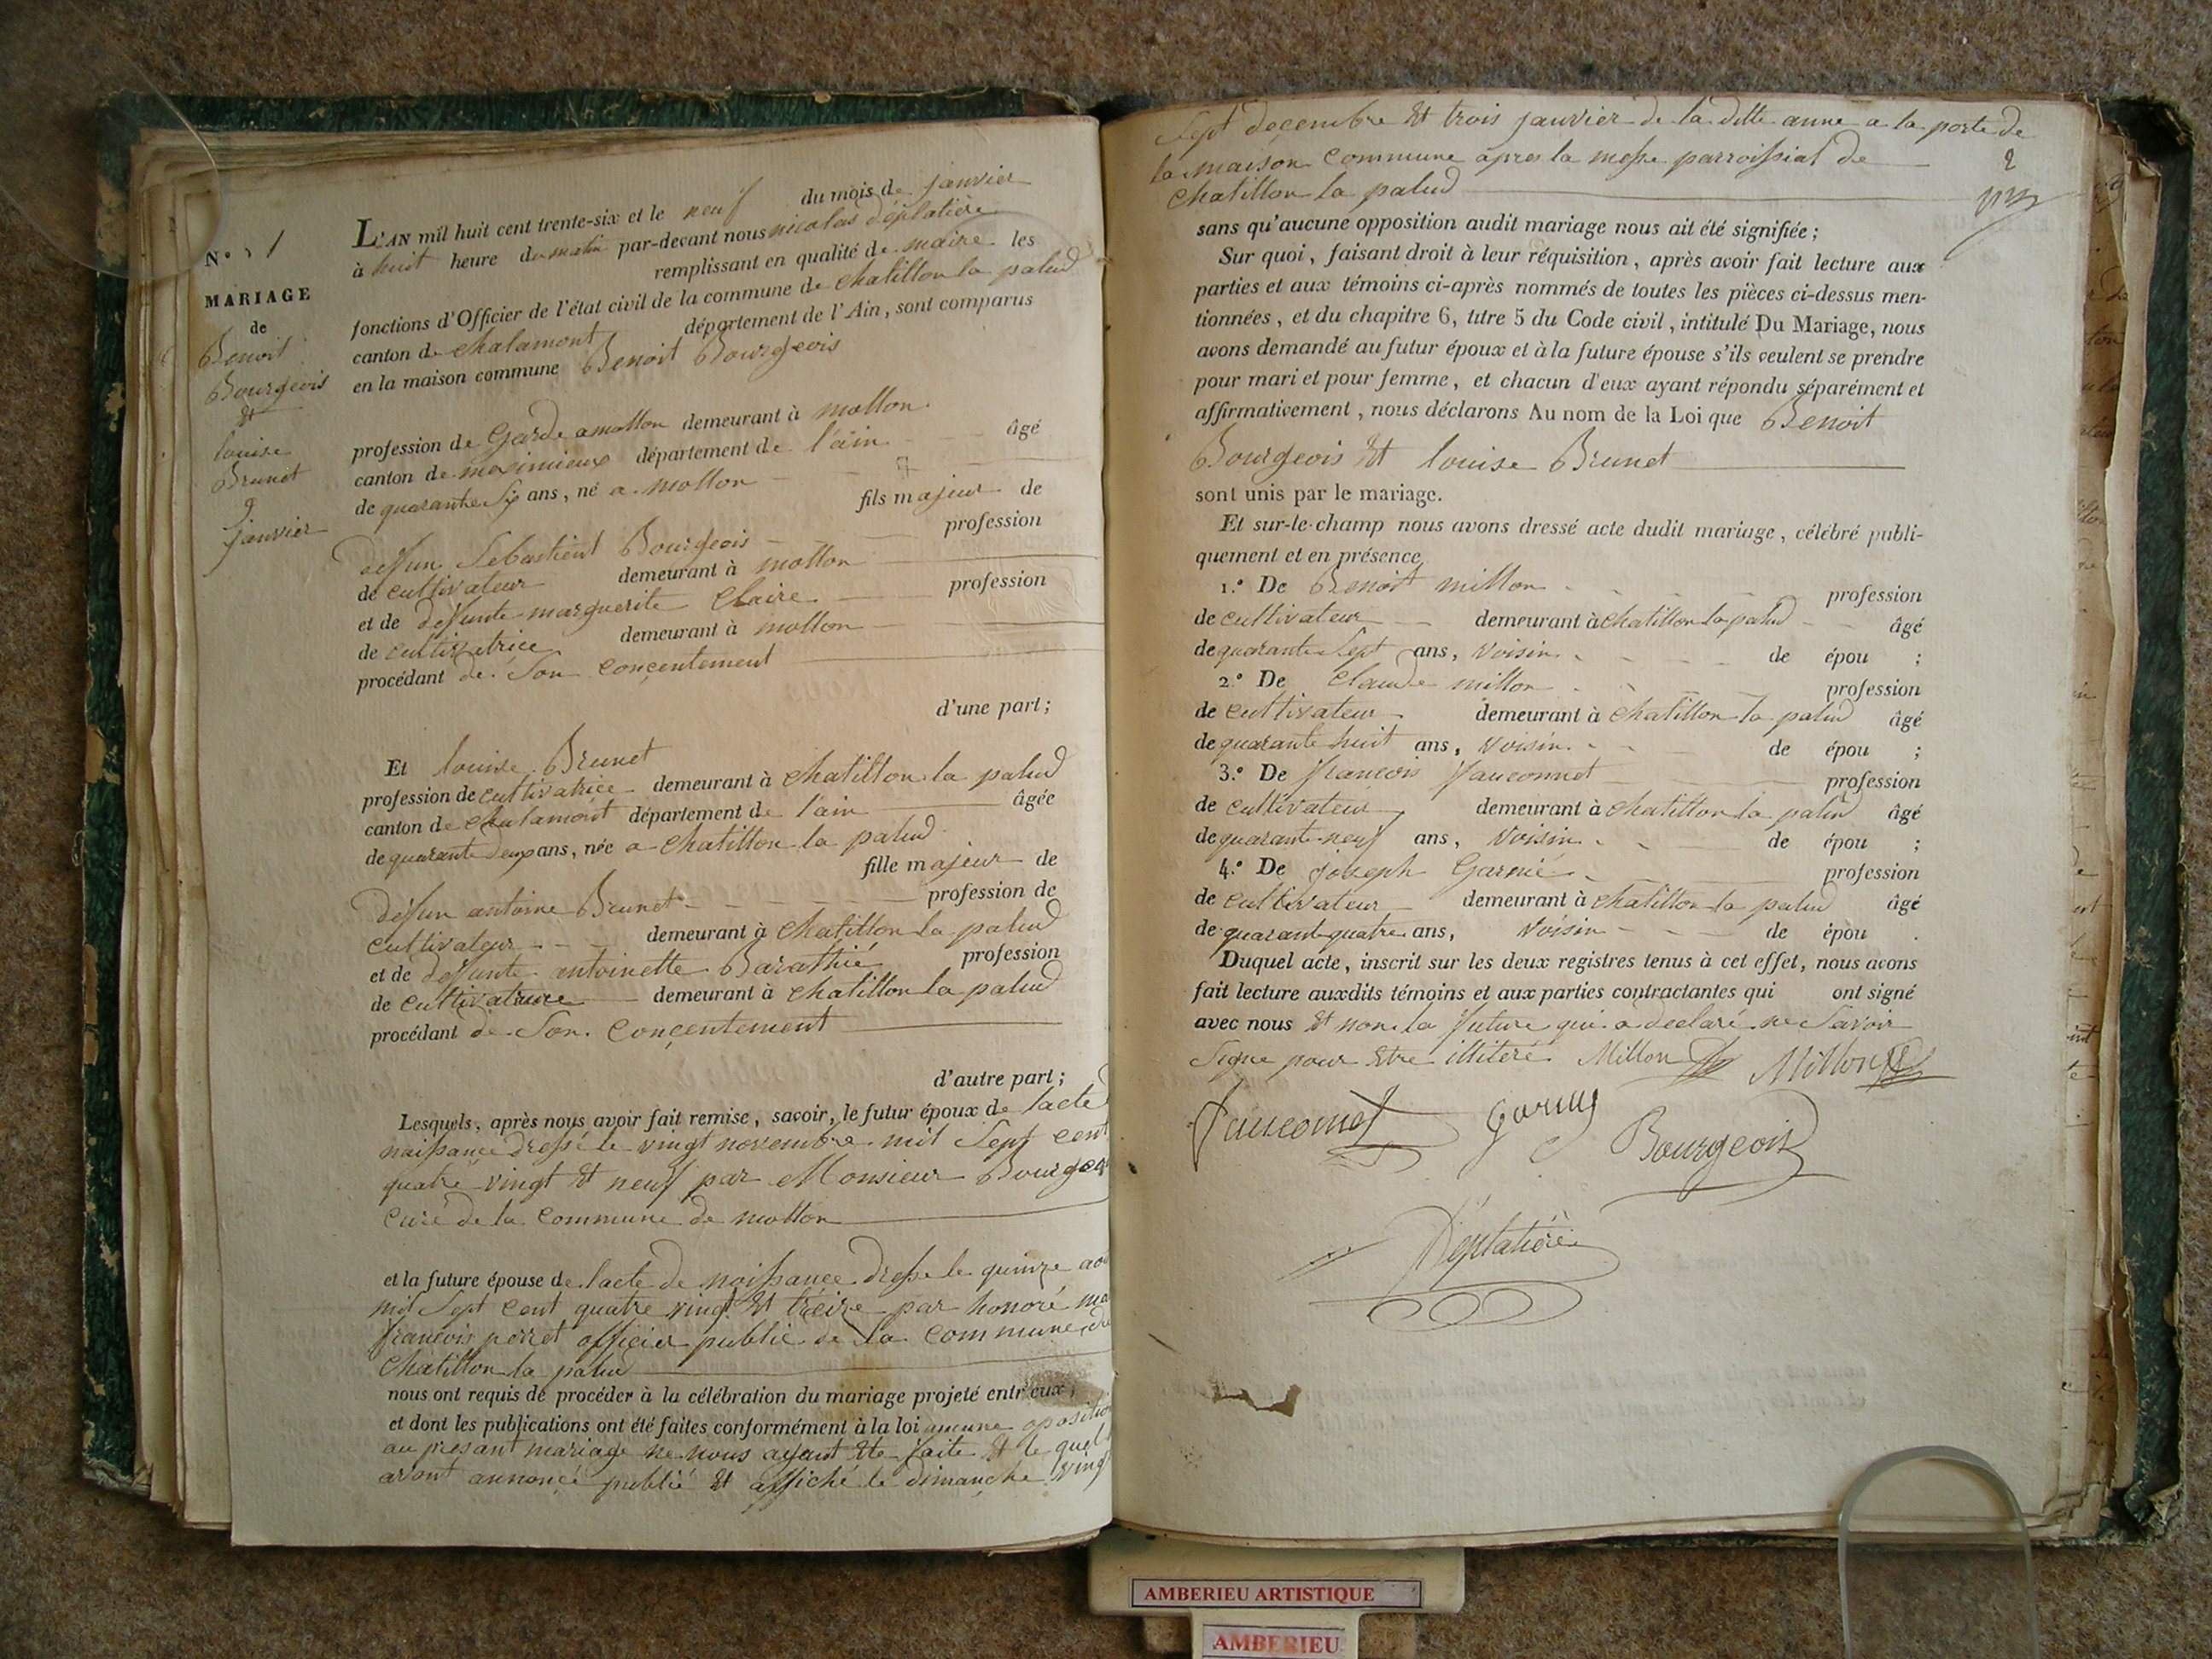 N.° 1
MARIAGE
de
Benoit
Bourgeois
et
louise
Brunet
9
janvier
L'AN mil huit cent trente-six et le neuf du mois de janvier
à huit heure du matin par-devant nous nicolas déplatière
remplissant en qualité de maire les
fonctions d'Officier de l'état civil de la commune de chatillon la palud
canton de chalamont département de l'Ain, sont comparus
en la maison commune Benoit Bourgeois
profession de Garde a mollon demeurant à mollon
canton de meximieux département de l'ain âgé
de quarante six ans, né a mollon
fils majeur de
deffun Sebastient Bourgeois profession
de cultivateur demeurant à mollon
et de deffunte marguerite Claire profession
de cultivatrice demeurant à mollon
procédant de Son conçentement
d'une part;
Et louise Brunet
profession de cultivatrice demeurant à chatillon la palud
canton de chalamont département de l'ain âgée
de quarante deux ans, née a chatillon la palud
fille majeur de
deffun antoine Brunet profession de
cultivateur demeurant à chatillon la palud
et de deffunte antoinette Barathié profession
de cultivatrice demeurant à chatillon la palud
procédant de Son conçentement
d'autre part;
Lesquels, après nous avoir fait remise, savoir, le futur époux de lacte
naissance dressé le vingt novembre mil Sept cent
quatre vingt et neuf par Monsieur Bourgeois
curé de la commune de mollon
et la future épouse de lacte de naissance dresse le quinze
mil Sept cent quatre vingt et treize par honoré
francois perret officier public de la commune de
chatillon la palud
nous ont requis de procéder à la célébration du mariage projeté entr'eux;
et dont les publications ont été faites conformément à la loi aucune oposition
au presant mariage ne nous ayant ete faite et le quel
avont annoncé publié et affiché le dimanche vingt
Sept decembre et trois janvier de la ditte anne a la porte de
la maison commune apres la messe parroissial de
chatillon la palud
2
sans qu'aucune opposition audit mariage nous ait été signifiée;
Sur quoi, faisant droit à leur réquisition, après avoir fait lecture aux
parties et aux témoins ci-après nommés de toutes les pièces ci-dessus men-
tionnées, et du chapitre 6, titre 5 du Code civil, intitulé Du Mariage, nous
avons demandé au futur époux et à la future épouse s'ils veulent se prendre
pour mari et pour femme, et chacun d'eux ayant répondu séparément et
affirmativement, nous déclarons Au nom de la Loi que Benoit
Bourgeois et louise Brunet
sont unis par le mariage.
Et sur-le-champ nous avons dressé acte dudit mariage, célébré publi-
quement et en présence
1.° De Benoit millon profession
de cultivateur demeurant à chatillon la palud âgé
de quarante Sept ans, voisin de épou ;
2.° De Claude millon profession
de cultivateur demeurant à chatillon la palud âgé
de quarante huit ans, voisin de épou ;
3.° De francois fauconnet profession
de cultivateur demeurant à chatillon la palud âgé
de quarante neuf ans, voisin de épou ;
4.° De joseph Garnié profession
de cultivateur demeurant à chatillon la palud âgé
de quarant quatre ans, voisin de épou .
Duquel acte, inscrit sur les deux registres tenus à cet effet, nous avons
fait lecture auxdits témoins et aux parties contractantes qui ont signé
avec nous et non la future qui a declaré ne Savoir
Signe pour etre illiteré Millon Millon
fauconnet Bourgeois
Déplatière
AMBERIEU ARTISTIQUE
AMBERIEU